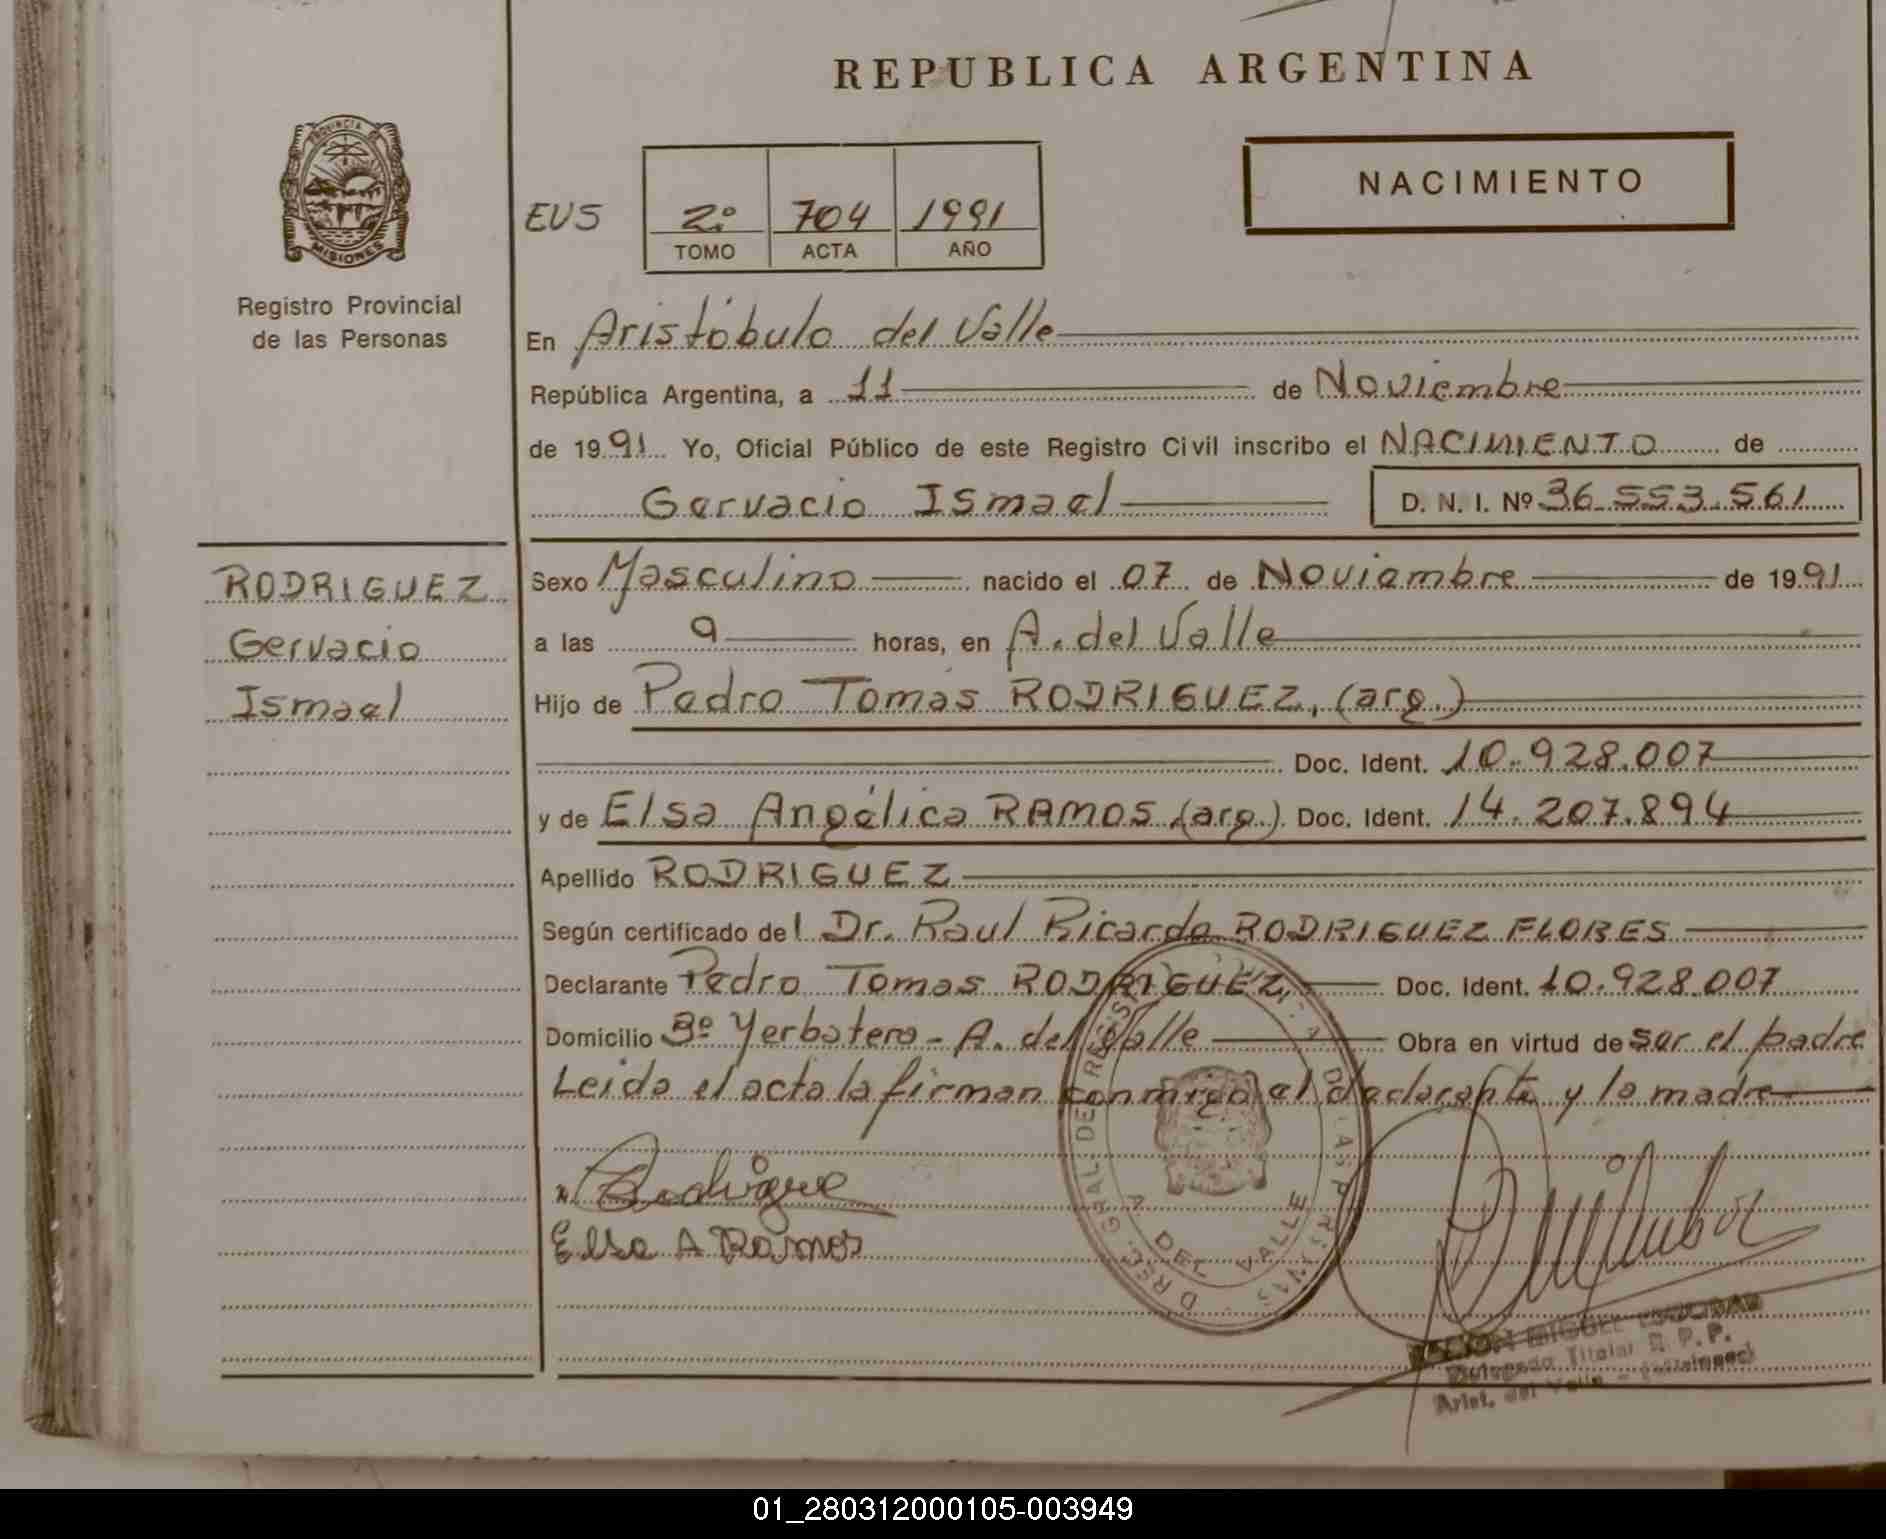 REPUBLICA ARGENTINA
PROVINCIA DE
MISIONES
NACIMIENTO
EUS
2º 704 1991
TOMO ACTA AÑO
Registro Provincial
de las Personas
En Aristóbulo del Valle
República Argentina, a 11 de Noviembre
de 1991 Yo, Oficial Público de este Registro Civil inscribo el NACIMIENTO de
Gervacio Ismael D. N. I. Nº 36.553.561
RODRIGUEZ
Gervacio
Ismael
Sexo Masculino nacido el 07 de Noviembre de 1991
a las 9 horas, en A. del Valle
Hijo de Pedro Tomas RODRIGUEZ, (arg.)
Doc. Ident. 10.928.007
y de Elsa Angélica RAMOS (arg.) Doc. Ident. 14.207.894
Apellido RODRIGUEZ
Según certificado del Dr. Raul Ricardo RODRIGUEZ FLORES
Declarante Pedro Tomas RODRIGUEZ, Doc. Ident. 10.928.007
Domicilio Bº Yerbatero - A. del Valle Obra en virtud de ser el padre
Leida el acta la firman conmigo el declarante y la madre
Elsa A Ramos
A DEL VALLE
MIGUEL ESCOBAR
Delegado Titular R. P. P.
Arist. del Valle
01_280312000105-003949